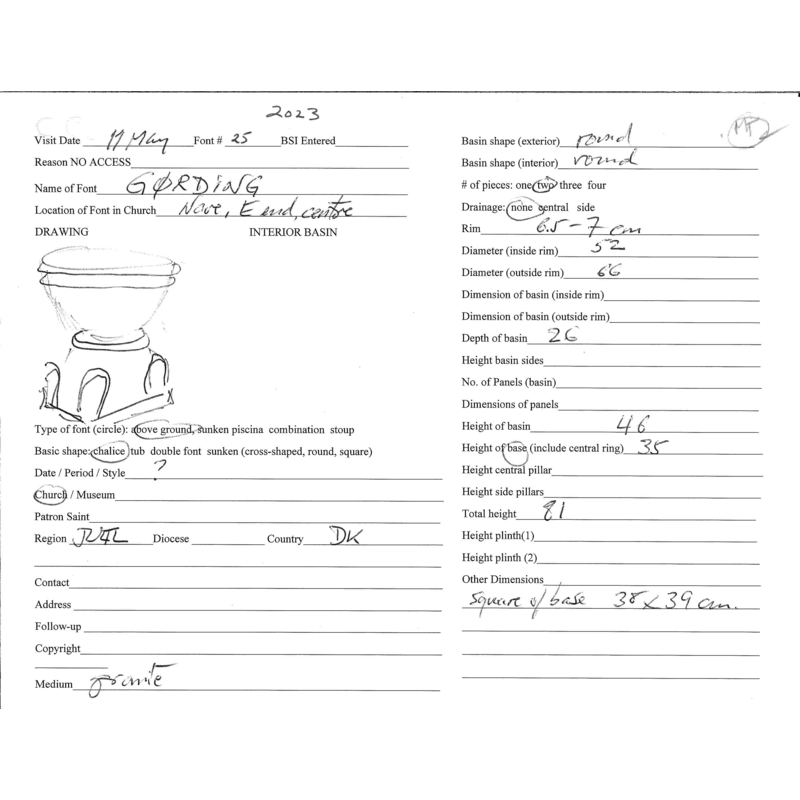 2023
Visit Date 17 May Font # 25 BSI Entered
Reason NO ACCESS
Name of Font GØRDING
Location of Font in Church Nave, E end, centre
DRAWING INTERIOR BASIN
Type of font (circle): above ground, sunken piscina combination stoup
Basic shape: chalice tub double font sunken (cross-shaped, round, square)
Date / Period / Style ?
Church / Museum
Patron Saint
Region JUTL Diocese Country DK
Contact
Address
Follow-up
Copyright
Medium granite
Basin shape (exterior) round
Basin shape (interior) round
# of pieces: one two three four
Drainage: none central side
Rim 6.5 - 7 cm
Diameter (inside rim) 52
Diameter (outside rim) 66
Dimension of basin (inside rim)
Dimension of basin (outside rim)
Depth of basin 26
Height basin sides
No. of Panels (basin)
Dimensions of panels
Height of basin 46
Height of base (include central ring) 35
Height central pillar
Height side pillars
Total height 81
Height plinth(1)
Height plinth (2)
Other Dimensions
square of base 38 x 39 cm.